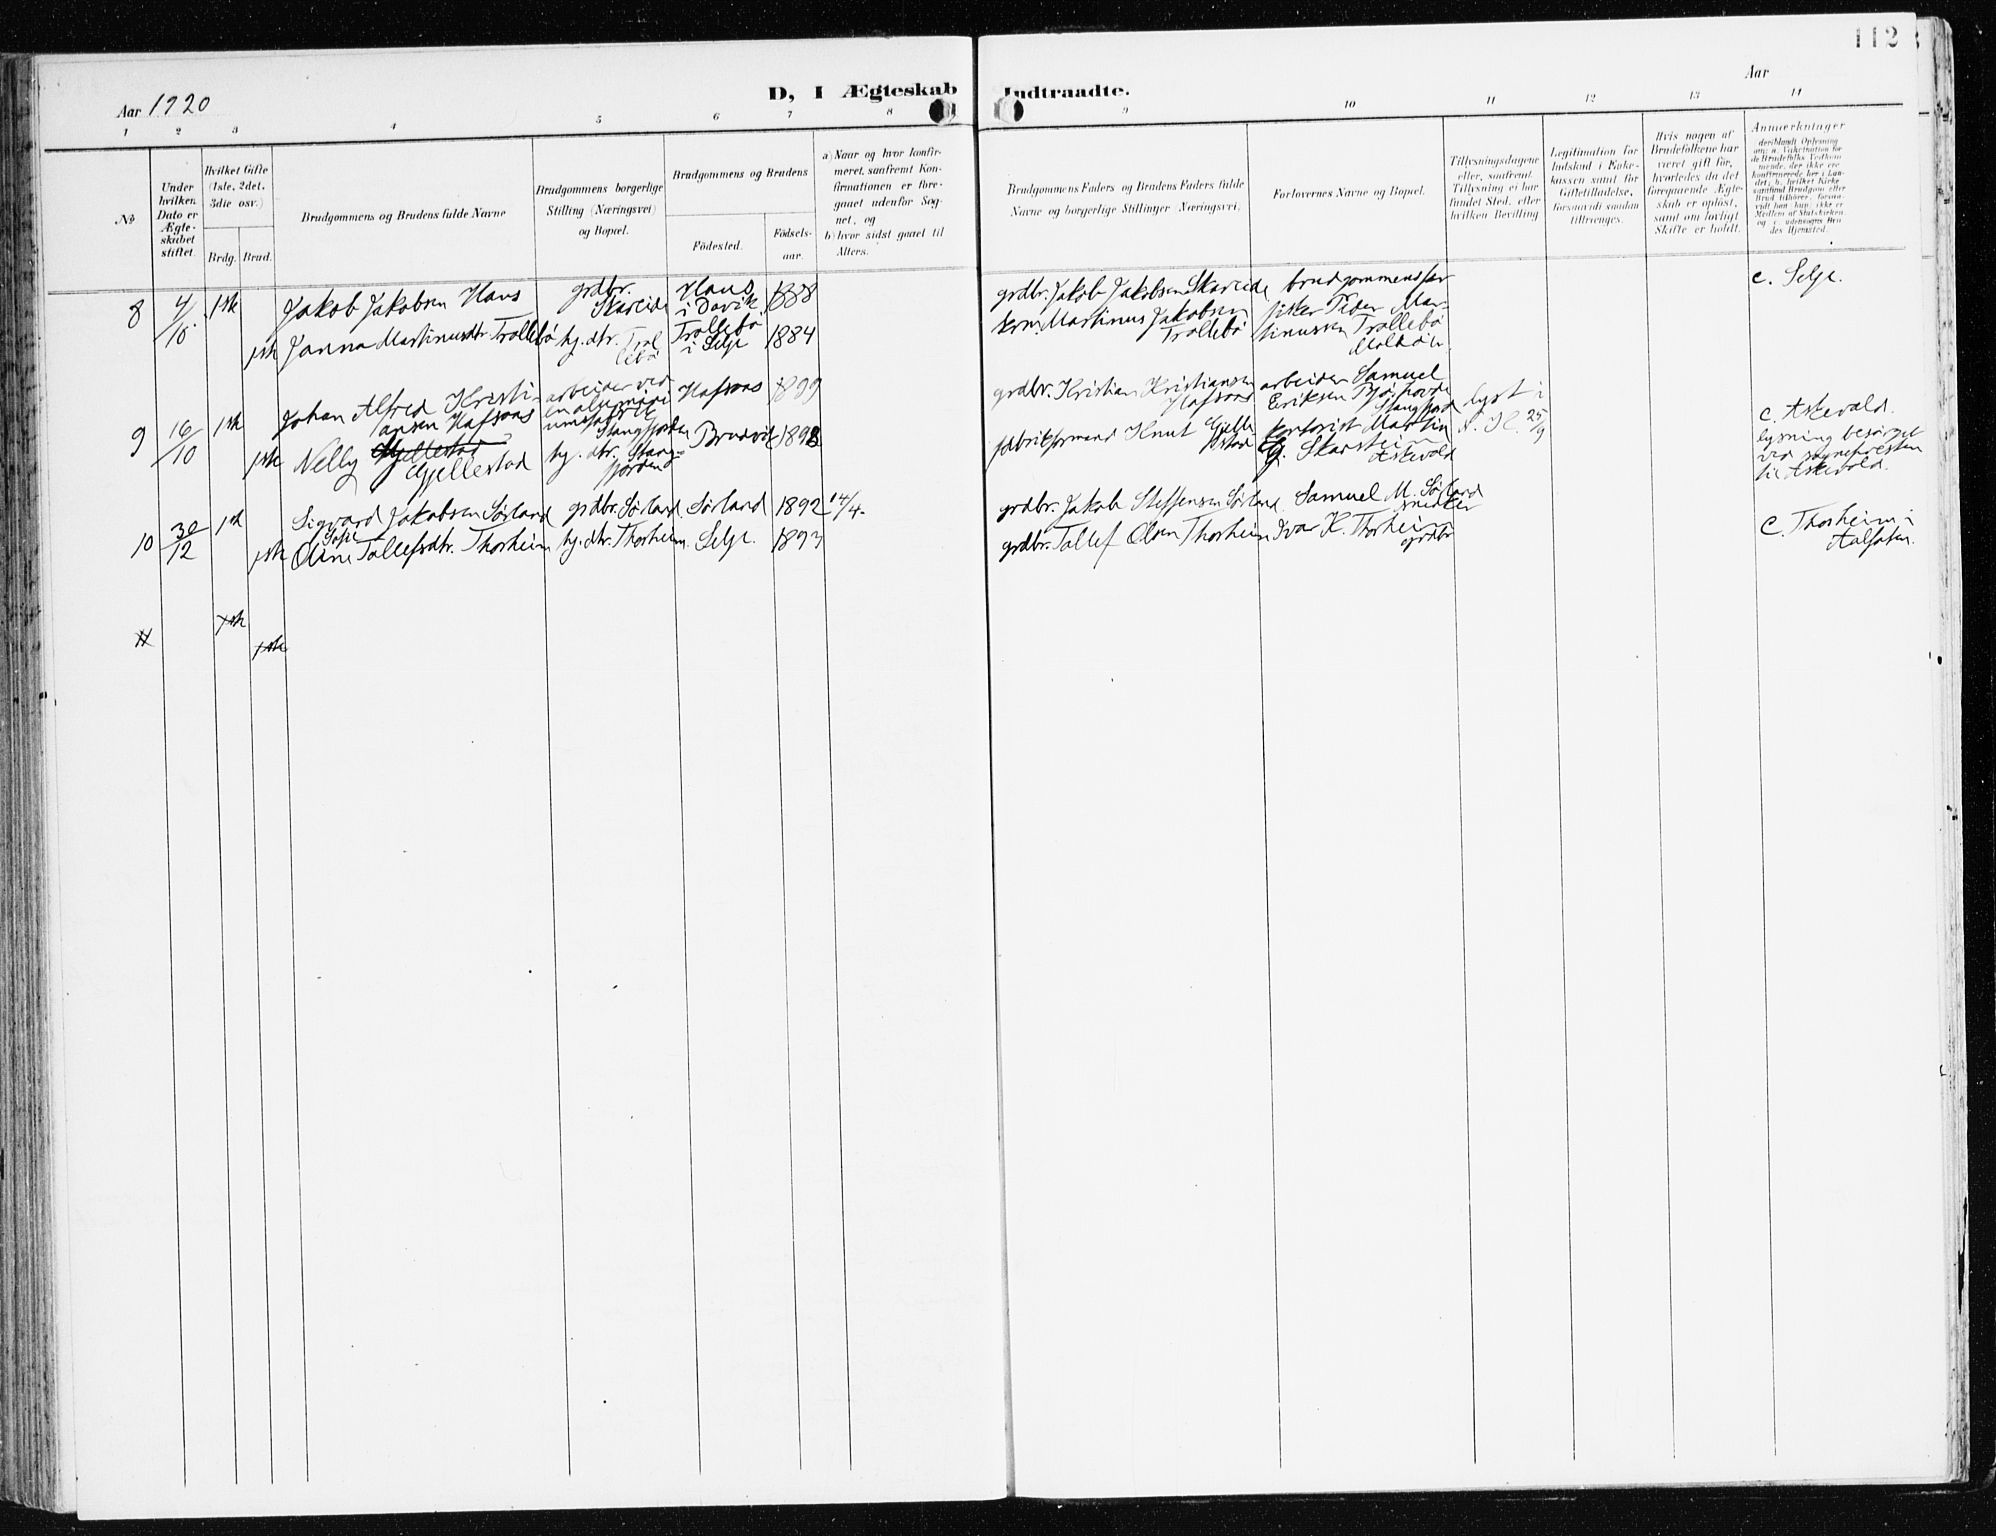 112
Aar 1920
D, I Ægteskab Indtraadte.
Aar
1 2 3 4 5 6 7 8 9 10 11 12 13 14
No
Under hvilken Dato er Ægteskabet stiftet.
Hvilket Gifte (1ste, 2det, 3die osv.)
Brdg. Brud.
Brudgommens og Brudens fulde Navne
Brudgommens borgerlige Stilling (Næringsvei) og Bopæl.
Brudgommens og Brudens
Fødested.
Fødselsaar.
a) Naar og hvor konfirmeret, saafremt Konfirmationen er foregaaet udenfor Sognet, og
b) hvor sidst gaaet til Alters.
Brudgommens Faders og Brudens Faders fulde Navne og borgerlige Stillinger (Næringsvei).
Forlovernes Navne og Bopæl.
Tillysningsdagene eller, saafremt Tillysning ei har fundet Sted, efter hvilken Bevilling
Legitimation for Indskud i Enkekassen samt for Giftetilladelse, forsaavidt saadan tiltrænges.
Hvis nogen af Brudefolkene har været gift før, hvorledes da det foregaaende Ægteskab er opløst, samt om lovligt Skifte er holdt.
Anmærkninger
8 4/10 1ste Jakob Jakobsen Haus grdbr. Skareide Haus i Davik 1888
grdbr. Jakob Jakobsen Skareide brudgommens far
c. Selje.
1ste Janna Martinusdtr. Trollebø hj. dtr. Trollebø Trollebø i Selje 1884
krm. Martinus Jakobsen Trollebø fisker Peder Martinussen Trollebø
9 16/10 1ste Johan Alfred Kristiansen Hafsaas arbeider ved Stangfjorden Hafsaas 1899
grdbr. Kristian Kristiansen Hafsaas arbeider Samuel Eriksen Stangfjord
lyst i N. K. 25/9
c. Askevold.
lysning besørget ved sognepresten til Askevold.
1ste Nelly Gjellestad Gjellestad hj. dtr. Stangfjorden 1898
fabrikformand Knut Gjellestad kontorist Martin G. Skarstein Askevold
10 30/12 1ste Sigvard Jakobsen Sørland grdbr. Sørland Sørland 1892 14/4.
grdbr. Jakob Steffensen Sørland Samuel M. Sørland snekker
c. Thorheim i Aalfoten.
1ste Oline Sofie Tollefsdtr. Thorheim hj. dtr. Thorheim Selje. 1893
grdbr. Tollef Olsen Thorheim Ivar K. Thorheim grdbr
11 1ste
1ste